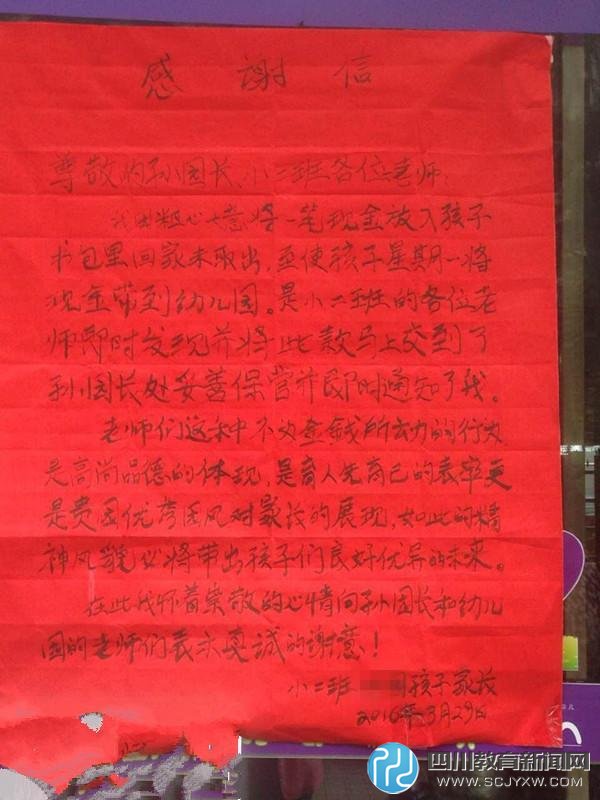 感谢信
尊敬的孙园长、小二班各位老师:
我因粗心大意将一笔现金放入孩子
书包里回家未取出,至使孩子星期一将
现金带到幼儿园。是小二班的各位老
师即时发现并将此款马上交到了
孙园长处妥善保管并即时通知了我。
老师们这种不为金钱所动的行为
是高尚品德的体现,是育人先育己的表率更
是贵园优秀园风对家长的展现,如此的精
神风貌必将带出孩子们良好优异的未来。
在此我怀着崇敬的心情向孙园长和幼儿
园的老师们表示真诚的谢意!
小二班 孩子家长
2016年3月29日
四川教育新闻网
WWW.SCJYXW.COM